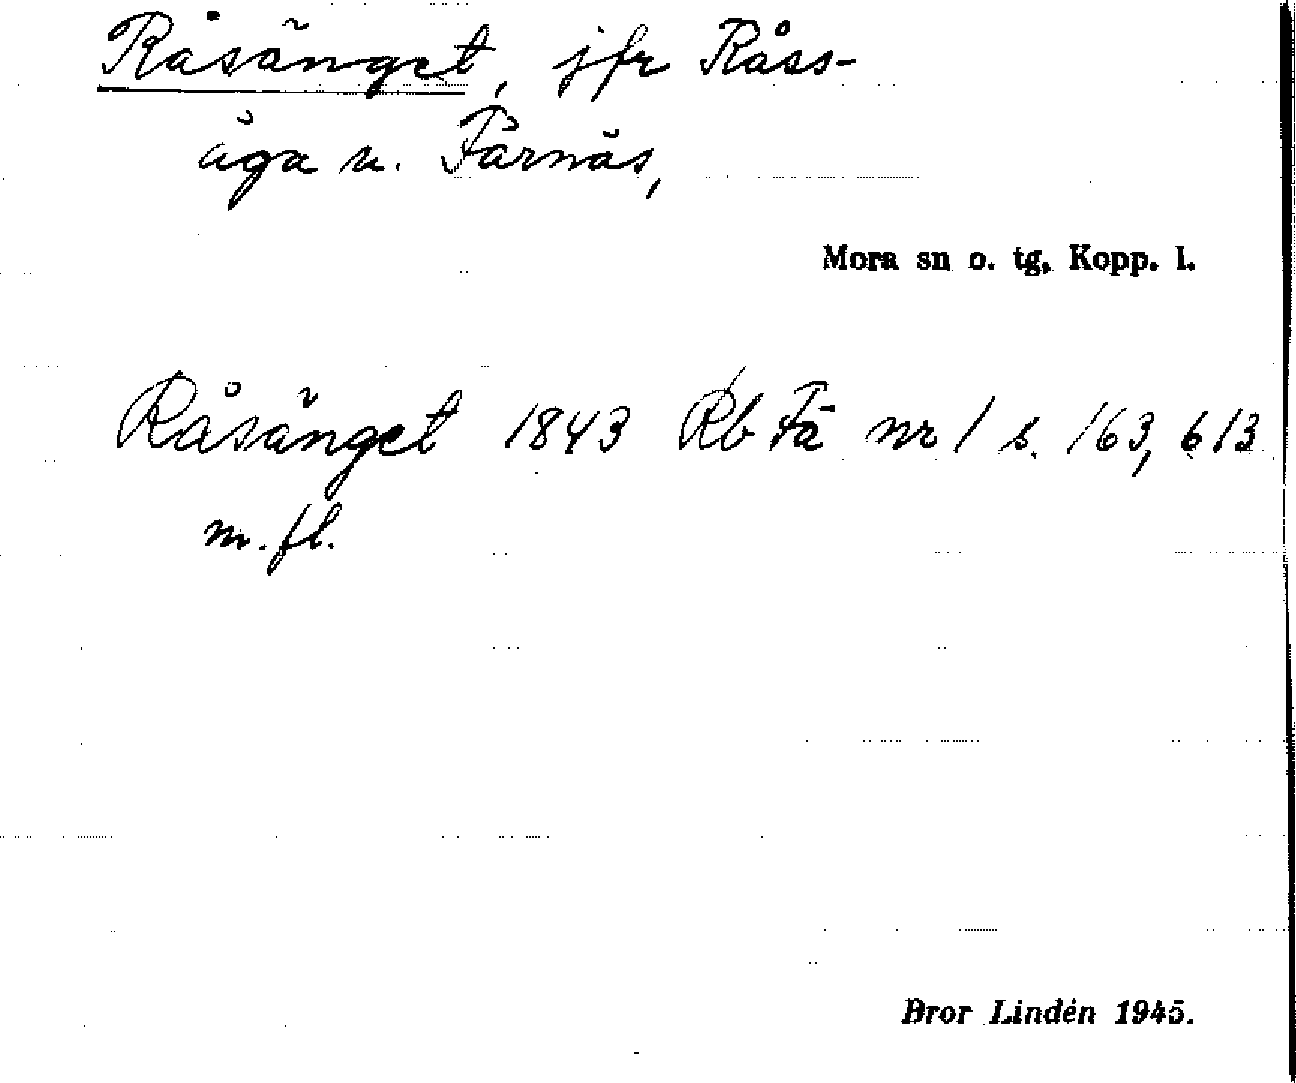 Råsänget, jfr Råss-
åga u. Färnäs,
Mora sn o. tg. Kopp. l.
Råsänget 1843 Rb Fä nr 1 s. 163, 613
m. fl.
Bror Lindén 1945.